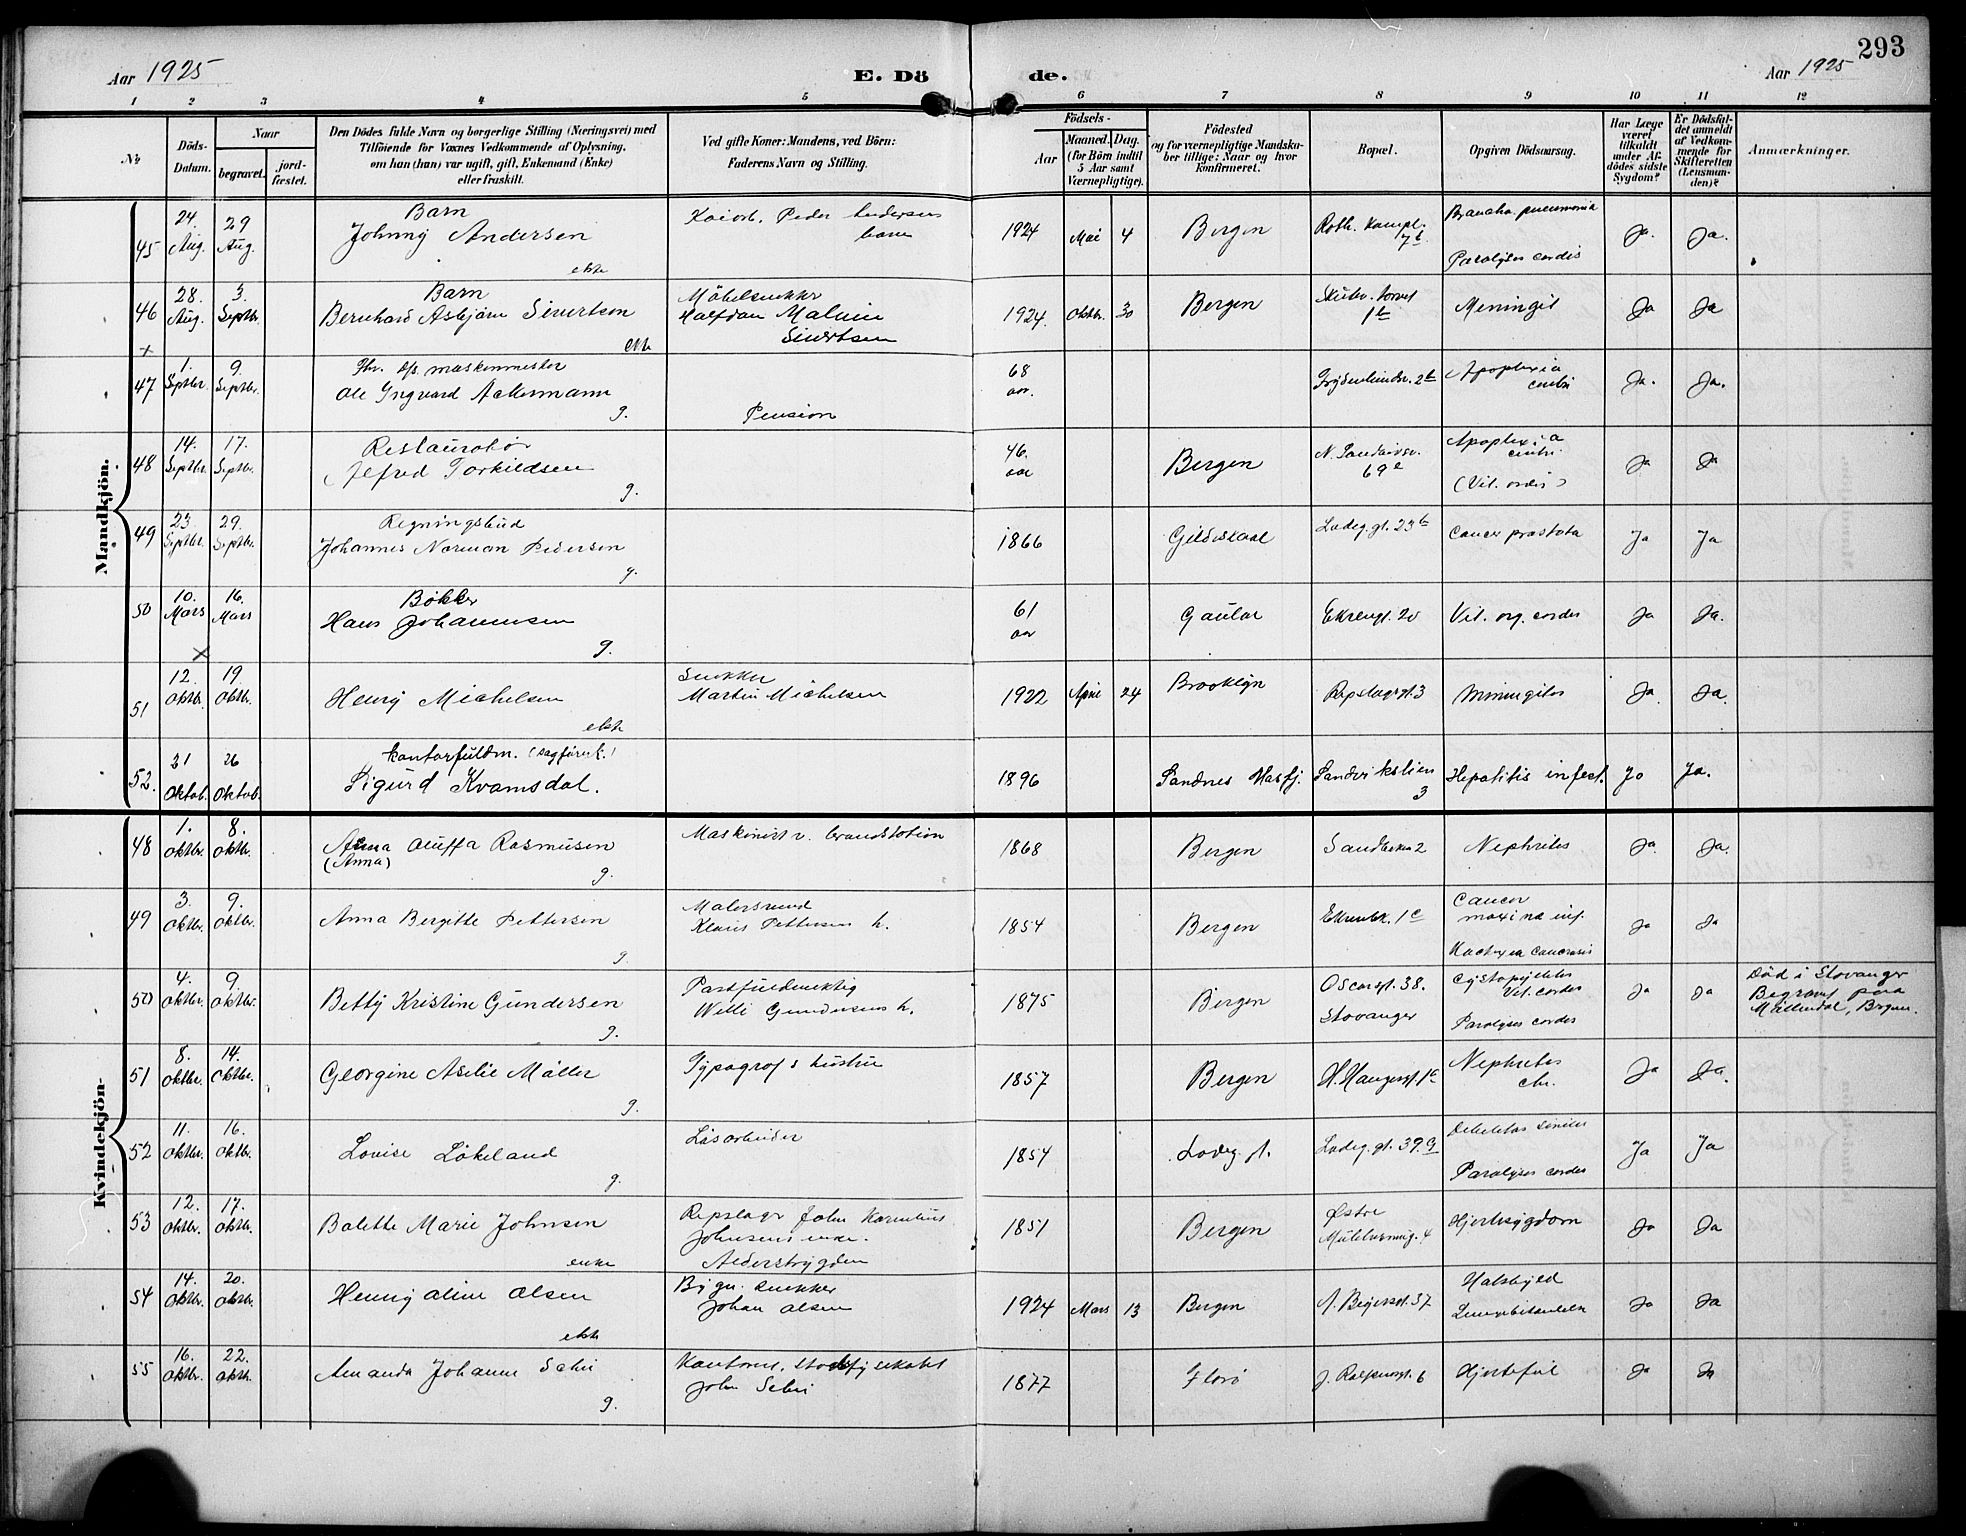 293
Aar 1925
E. Dö
de.
Aar 1925
1 2 3 4 5 6 7 8 9 10 11 12
No
Döds-Datum.
Naar
begravet.
jord-fæstet.
Den Dödes fulde Navn og borgerlige Stilling (Næringsvei) med
Tilföiende for Voxnes Vedkommende af Oplysning,
om han (hun) var ugift, gift, Enkemand (Enke)
eller fraskilt.
Ved gifte Koner: Mandens, ved Börn:
Faderens Navn og Stilling.
Födsels-
Aar
Maaned. Dag.
(for Börn indtil
5 Aar samt
Værnepligtige).
Födested
og for værnepligtige Mandska-
ber tillige: Naar og hvor
konfirmeret.
Bopæl.
Opgiven Dödsaarsag.
Har Læge
været
tilkaldt
under Af-
dödes sidste
Sygdom?
Er Dödsfal-
det anmeldt
af Vedkom-
mende for
Skifteretten
(Lensman-
den)?
Anmærkninger.
Mandkjön.
45 24. Aug. 29 Aug. Barn
Johnny Andersen
ekte
Peder Andersens barn
1924 Mai 4 Bergen
Broncho pneumonia
Paralyses cordis
Ja. Ja.
46 28. Aug. 3. Septbr. Barn
Bernhard Asbjörn Sivertsen
ekte
Möbelsnekker
Halfdan Malvin
Sivertsen
1924. Oktbr. 30 Bergen
Meningit Ja Ja
47 1. Septbr. 9. Septbr. maskinmester
Ole Ingvard Ackermann
g.
Pension
68 aar.
Apoplexia
Ja. Ja.
48 14. Septbr. 17. Septbr. Restauratör
Alfred Torkildsen
g.
46. aar Bergen
N. Sandviksv. 69
Apoplexia
Ja Ja
49 23. Septbr. 29. Septbr. Regningsbud
Johannes Norman Pedersen
g.
1866 Gildeskaal Ladeg. gt. 23 b Cancer prostata Ja Ja
50 10. Mars 16. Mars Bökker
Hans Johannesen
g.
61 aar Gaular Ekrengt. 20 Vit. org. cordis Ja Ja.
51 12. Oktbr. 19. Oktbr.
Henry Michelsen
ekte
Snekker
Martin Michelsen
1922 April 24 Brooklyn Repslagergt. 3 Meningites Ja Ja.
52. 21 Oktob. 26 Oktob. kontorfuldm. (sagförerk.)
Sigurd Kvamsdal.
1896 Sandnes Masfj. Sandvikslien 3 Hepatitis infect. Ja Ja.
Kvindekjön.
48 1. Oktbr. 8. Oktbr. Anna Oluffa Rasmusen
(Anna)
g.
Maskinist v. brandstation
1868 Bergen Sandbakken 2 Nephrites Ja. Ja.
49 3. Oktbr. 9. Oktbr. Anna Bergitte Pettersen
g.
Malersvend
Klaus Pettersen h.
1854 Bergen 1 c
Cancer
maxi næ inf.
Ja Ja
50 4. Oktbr. 9. Oktbr. Betty Kristine Gundersen
g.
Postfuldmektig
Willi Gundersens h.
1875 Bergen Oscarsgt. 38.
Stavanger
Vit. cordis
Paralyses cordis
Ja Ja
Död i Stavanger
Begravet paa
Möllendal, Bergen.
51 8. Oktbr. 14. Oktbr. Georgine Aselie Möller
g.
Typograf s hustru
1857 Bergen H. Haugersgt. 1 a Nephrites
chr.
Ja Ja.
52 11. Oktbr. 16. Oktbr. Lovise Lökeland
g.
Lösarbeider
1854 Ladeg. gt. Ladeg. gt. 39. a Debilitas seniles
Paralyses cordis
Ja Ja
53 12. Oktbr. 17. Oktbr. Bolette Marie Johnsen
enke
Repslager John Kornelius
Johnsens enke.
Alderstrygden
1851 Bergen Østre
4 Hjertesygdom Ja Ja
54 14. Oktbr. 20. Oktbr. Henny Aline Olsen
ekte
Bygn. snekker
Johan Olsen
1924 Mars 13 Bergen 37 Halsbyld
Lungebetændelse
Ja Ja
55 16. Oktbr. 22. Oktbr. Amanda Johanne
g.
John
1877 Florö 6 Hjertefeil Ja Ja